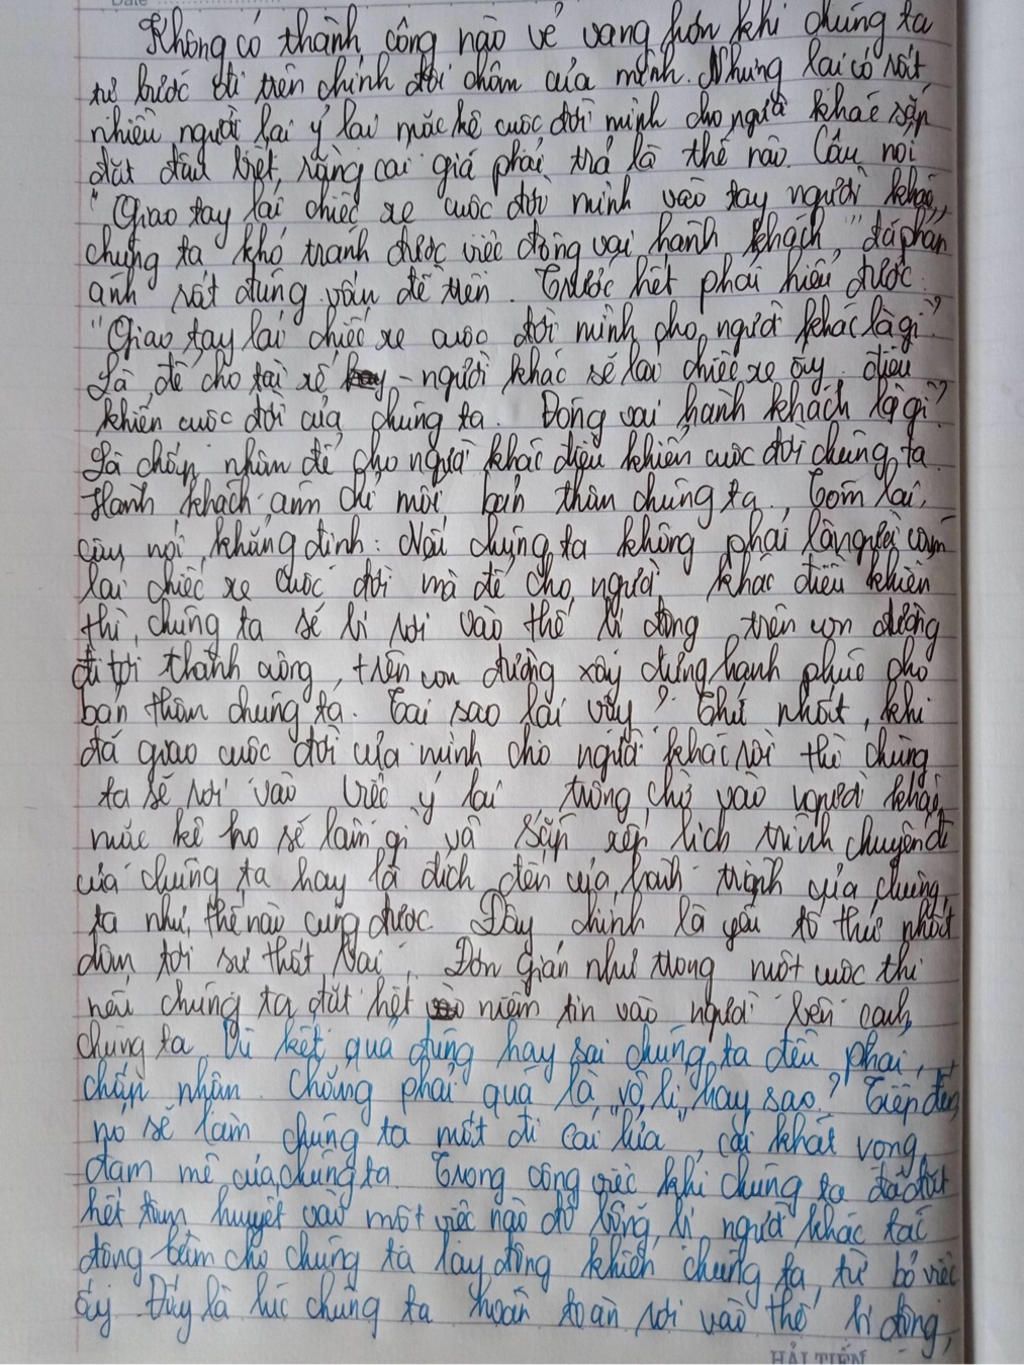 Date
Không có thành công nào vẻ vang hơn khi chúng ta
tự bước đi trên chính đôi chân của mình. Nhưng lại có rất
nhiều người lại ỷ lại mặc kệ cuộc đời mình cho người khác sắp
đặt đâu biết, rằng cái giá phải trả là thế nào. Câu nói
"Giao tay lái chiếc xe cuộc đời mình vào tay người khác,
chúng ta khó tránh được việc đóng vai hành khách," đã phản
ánh rất đúng vấn đề trên. Trước hết phải hiểu được
"Giao tay lái chiếc xe cuộc đời mình cho người khác là gì"?
Là để cho tài xế - người khác sẽ lái chiếc xe ấy điều
khiển cuộc đời của chúng ta. Đóng vai hành khách là gì?
Là chấp nhận để cho người khác điều khiển cuộc đời chúng ta.
Hành khách ám chỉ mỗi bản thân chúng ta. Tóm lại,
câu nói khẳng định: Nếu chúng ta không phải là người cầm
lái chiếc xe cuộc đời mà để cho người khác điều khiển
thì chúng ta sẽ bị rơi vào thế bị động trên con đường
đi tới thành công, trên con đường xây dựng hạnh phúc cho
bản thân chúng ta. Tại sao lại vậy? Thứ nhất, khi
đã giao cuộc đời của mình cho người khác rồi thì chúng
ta sẽ rơi vào việc ỷ lại trông chờ vào người khác,
mặc kệ họ sẽ làm gì và sắp xếp lịch trình chuyến đi
của chúng ta hay là đích đến của hành trình của chúng
ta như thế nào cũng được. Đây chính là yếu tố thứ nhất
dẫn tới sự thất bại. Đơn giản như trong một cuộc thi
nếu chúng ta đặt hết niềm tin vào người bên cạnh
chúng ta dù kết quả đúng hay sai chúng ta đều phải
chấp nhận. Chẳng phải quá là "vô lí" hay sao? Tiếp đến,
nó sẽ làm chúng ta mất đi cái lửa", cái khát vọng,
đam mê của chúng ta. Trong công việc khi chúng ta đã đặt
hết tâm huyết vào một việc nào đó bỗng bị người khác tác
động làm cho chúng ta lay động khiến chúng ta từ bỏ việc
ấy. Đấy là lúc chúng ta hoàn toàn rơi vào thế bị động,
HẢI TIẾN